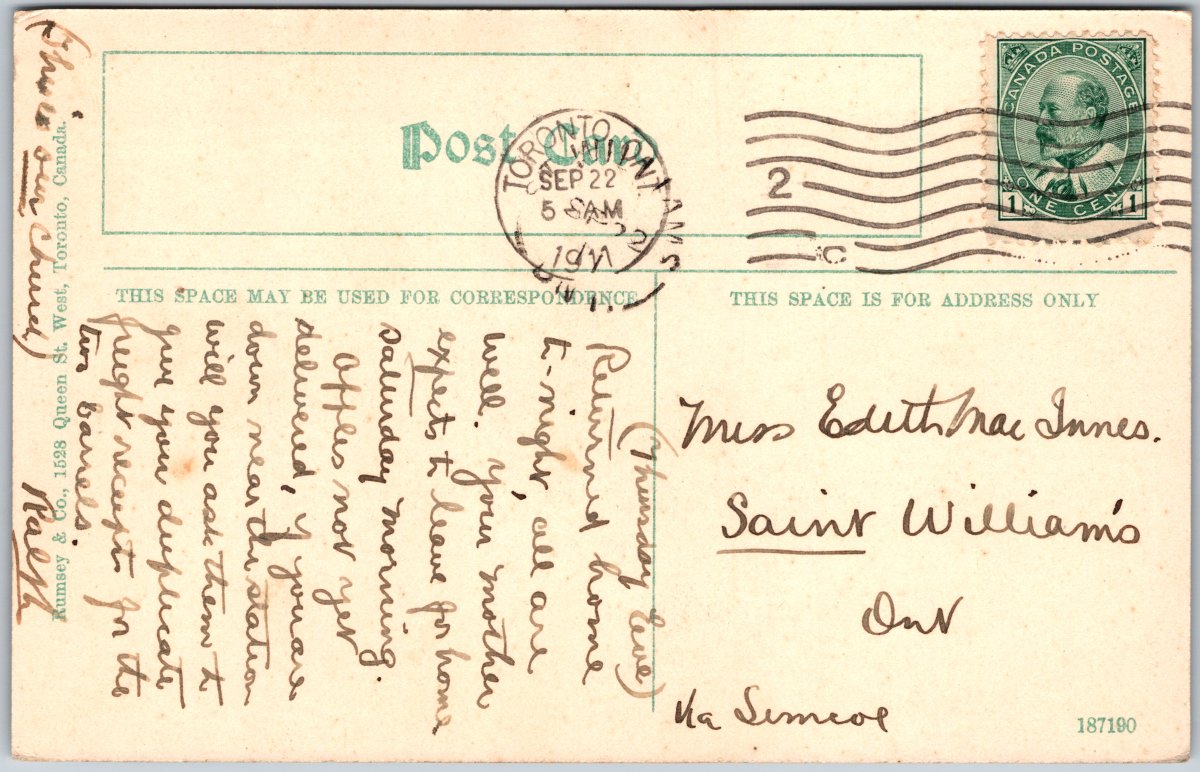 Post Card
TORONTO, ONT.
SEP 22
5 AM
1911
2
C
CANADA POSTAGE
ONE CENT
1 1
THIS SPACE MAY BE USED FOR CORRESPONDENCE
THIS SPACE IS FOR ADDRESS ONLY
(Thursday Eve)
Returned home
to-night, all are
well. your mother
expects to leave for home
saturday morning.
Apples not yet
delivered, if you are
down near the station
will you ask them to
give you duplicate
freight receipt for the
two barrels.
Ralph
(This is our church)
Rumsey & Co., 1528 Queen St. West, Toronto, Canada.
Miss Edith Mac Innes.
Saint William's
Ont
Via Simcoe
187190